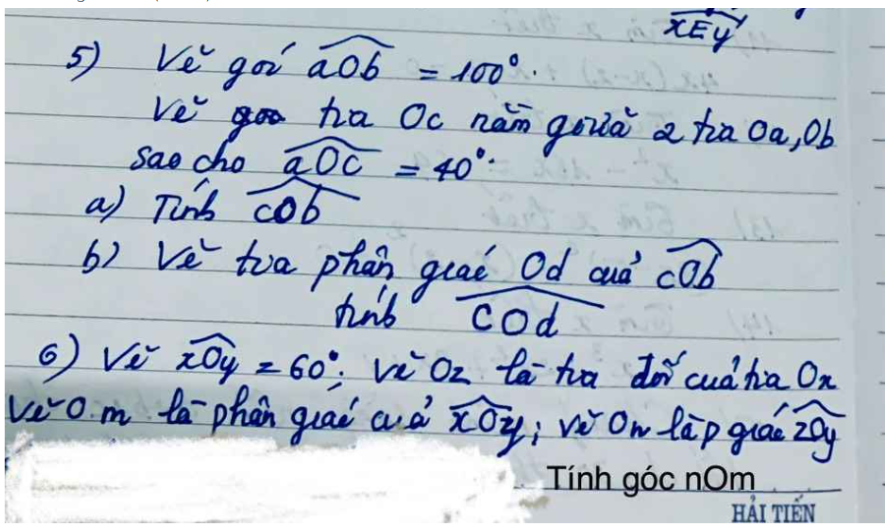 xEy
5) Vẽ góc aOb = 100°.
Vẽ tia Oc nằm giữa 2 tia Oa, Ob
sao cho aOc = 40°.
a) Tính cOb
b) Vẽ tia phân giác Od của cOb
tính cOd
6) Vẽ xOy = 60°; vẽ Oz là tia đối của tia Ox
Vẽ Om là phân giác của xOy; vẽ On là p giác zOy
Tính góc nOm
HẢI TIẾN